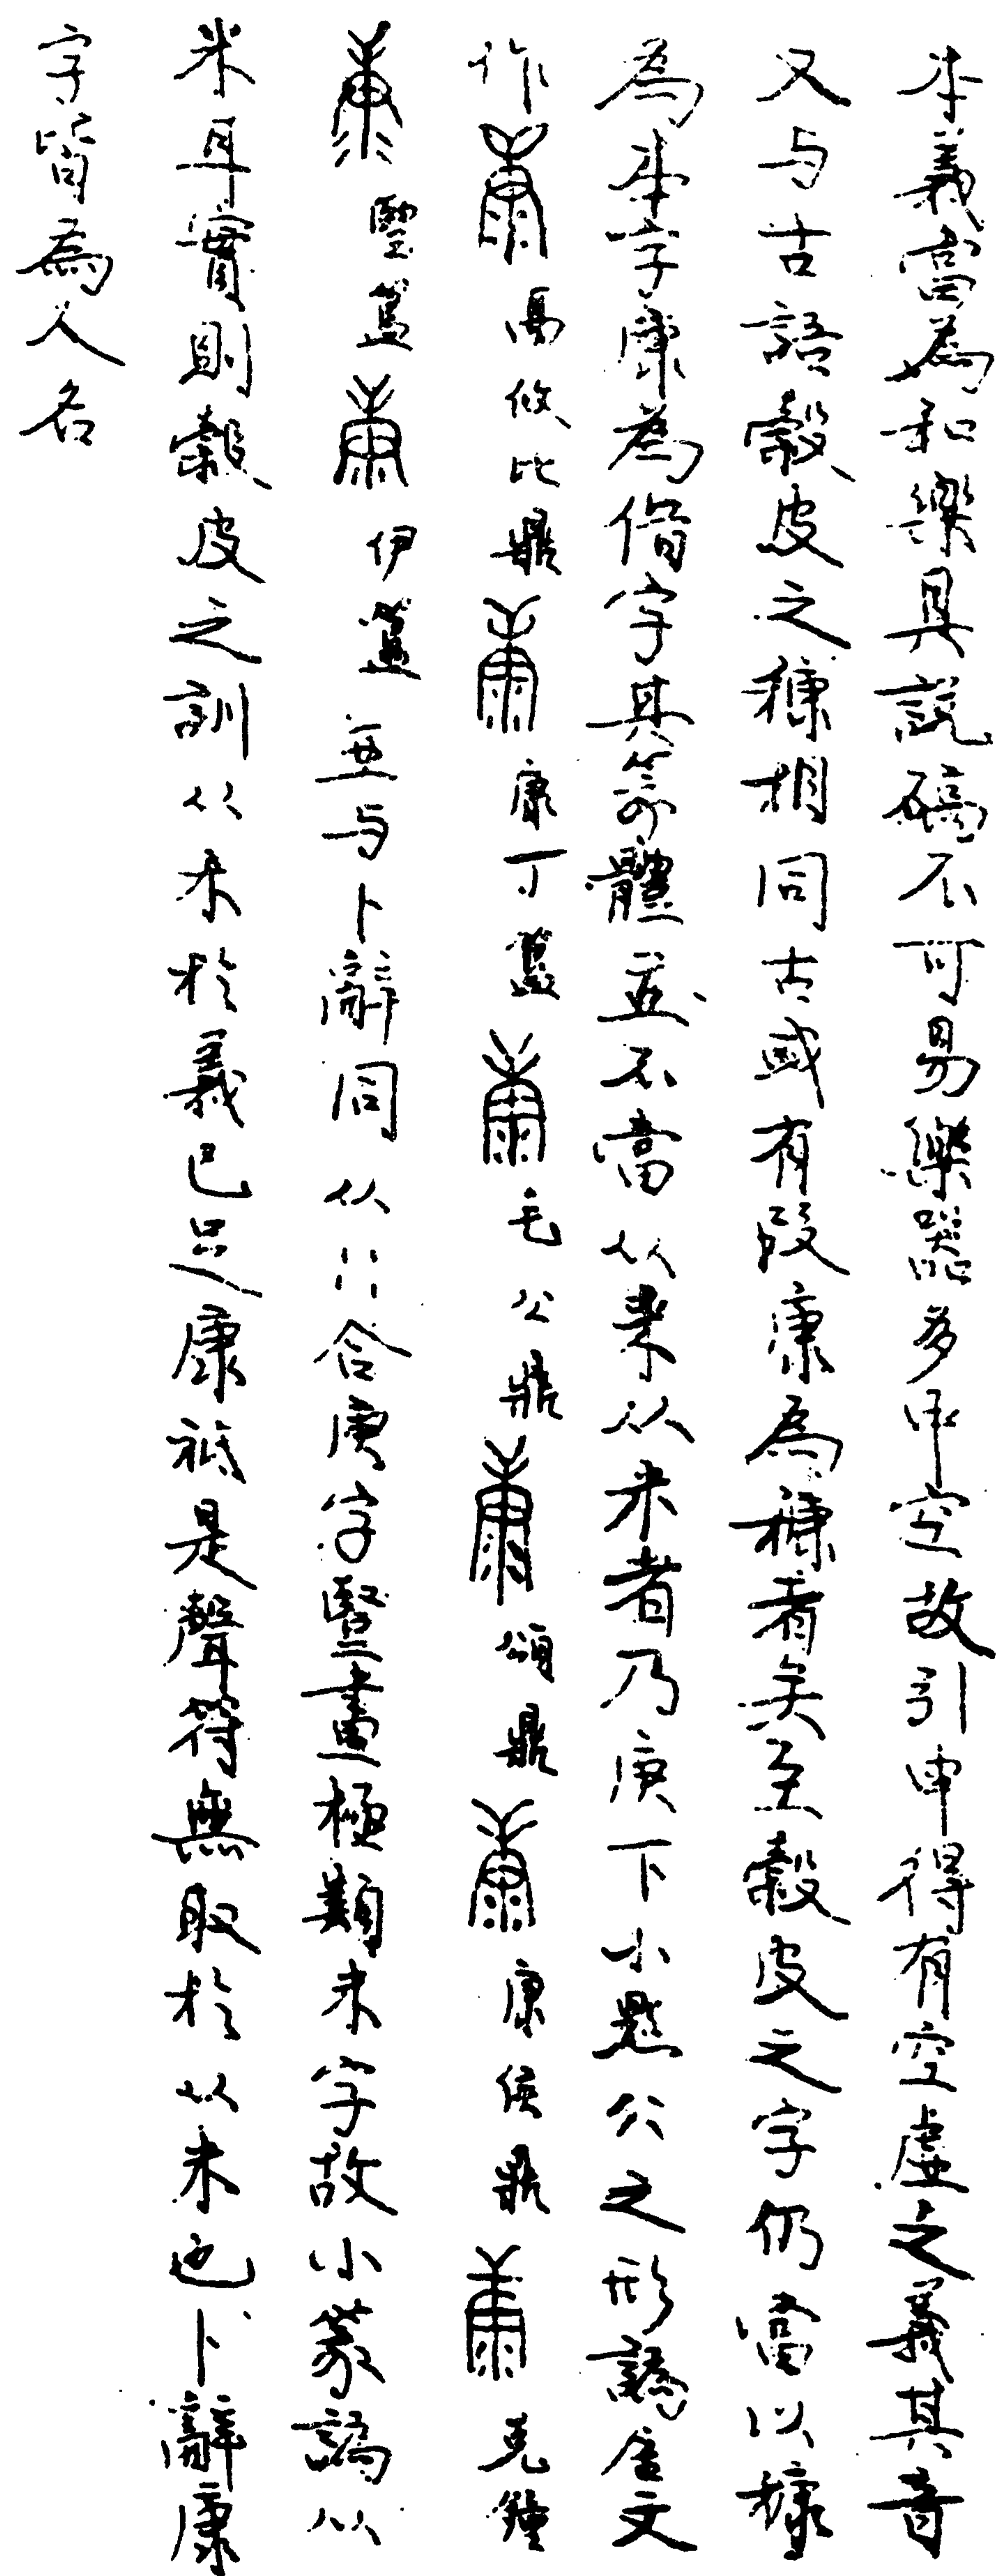 本義當為和樂其說碻不可易樂器多中空故引申得有空虛之義其音
又与古語穀皮之穅相同古或有叚康為穅者矣至穀皮之字仍當以穅
為本字康為借字其篆體並不當从米从米者乃庚下小點公之形譌金文
作 鬲攸比鼎 康丁簋 毛公鼎 頌鼎 康侯鼎 克鐘
簋 伊簋 並与卜辭同从八合庚字豎畫極類米字故小篆譌从
米耳實則穀皮之訓从米於義已足康祇是聲符無取於从米也卜辭康
字皆為人名